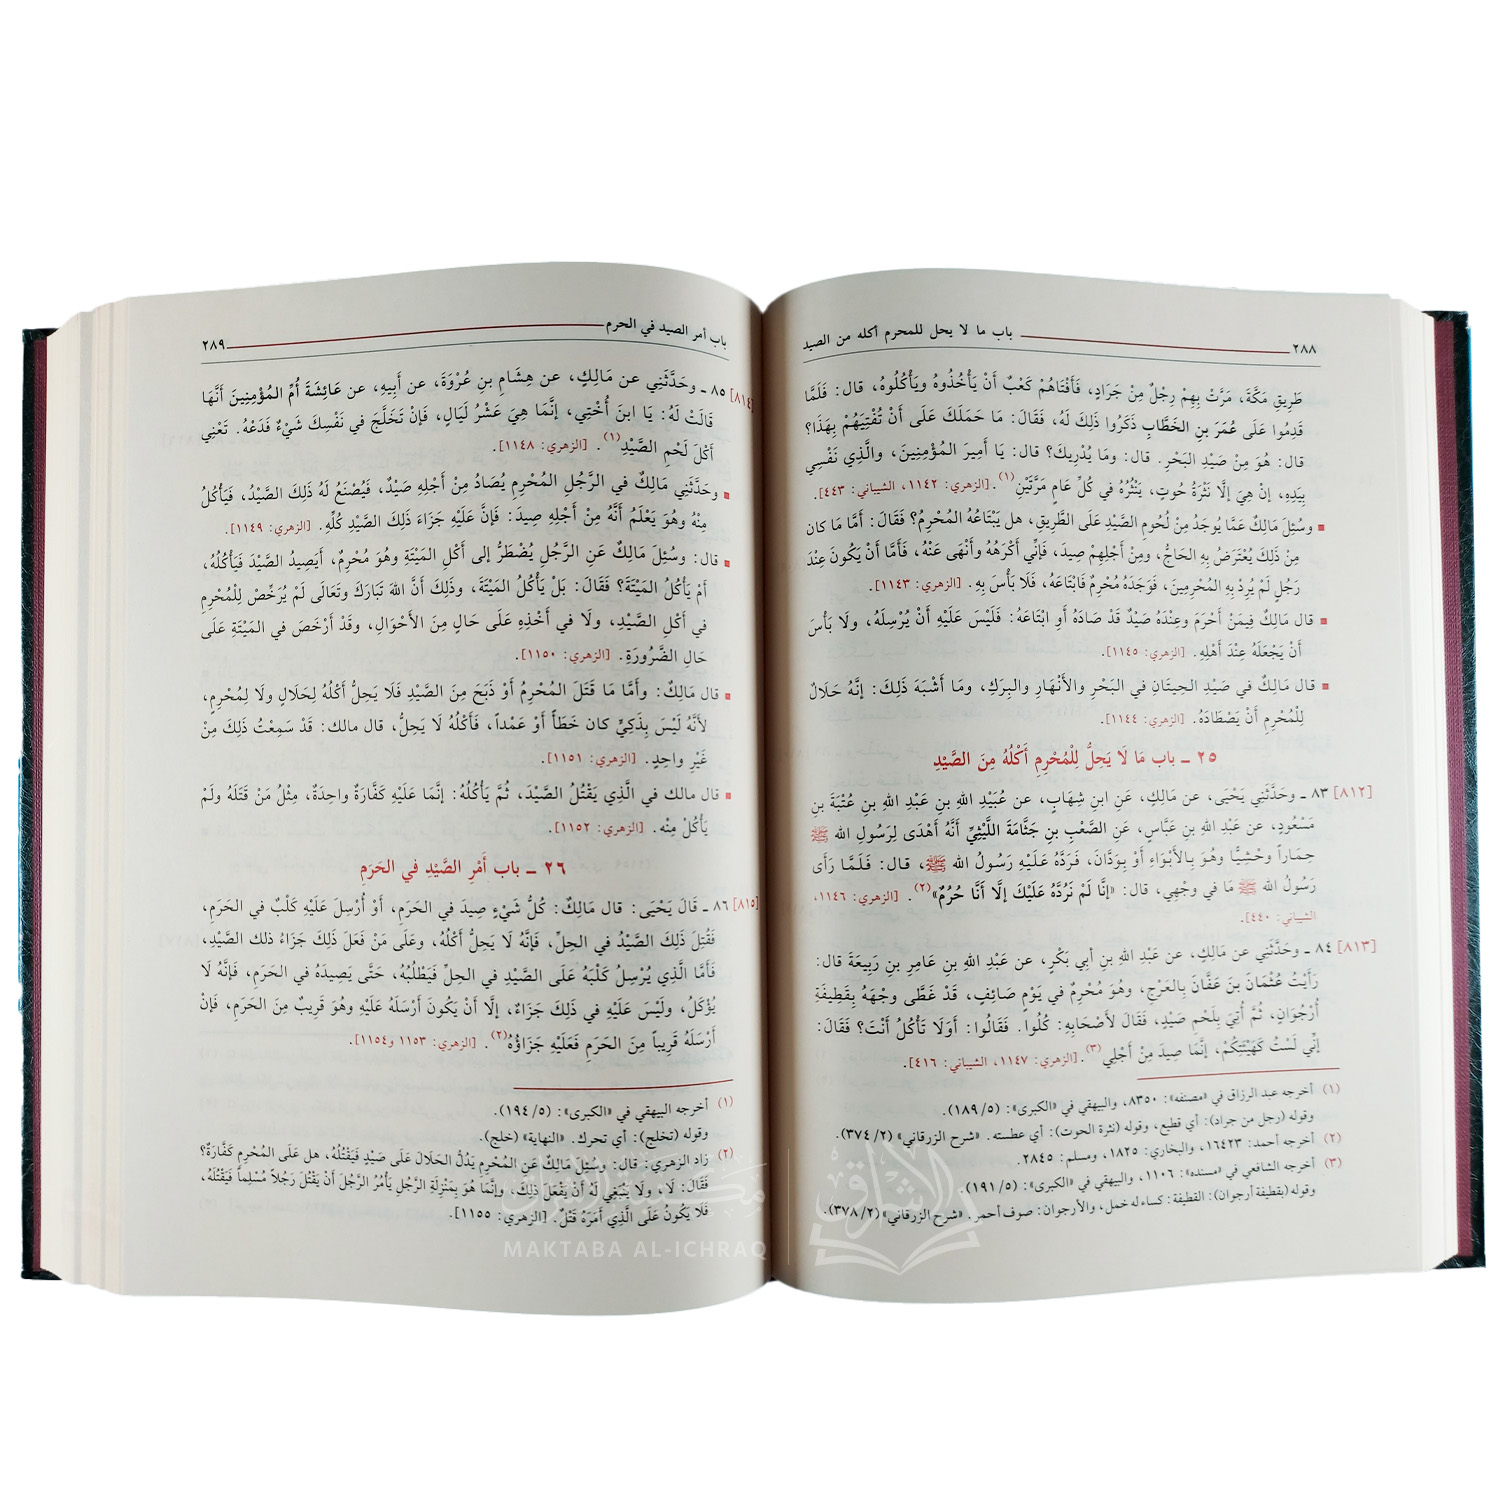 ٢٨٨ باب ما لا يحل للمحرم أكله من الصيد
طَرِيقِ مَكَّةَ، مَرَّتْ بِهِمْ رِجْلٌ مِنْ جَرَادٍ، فَأَفْتَاهُمْ كَعْبٌ أَنْ يَأْخُذُوهُ ويَأْكُلُوهُ، قال: فَلَمَّا
قَدِمُوا عَلَى عُمَرَ بنِ الخَطَّابِ ذَكَرُوا ذَلِكَ لَهُ، فَقَالَ: مَا حَمَلَكَ عَلَى أَنْ تُفْتِيَهُمْ بِهَذَا؟
قال: هُوَ مِنْ صَيْدِ البَحْرِ. قال: ومَا يُدْرِيكَ؟ قال: يَا أَمِيرَ المُؤْمِنِينَ، والَّذِي نَفْسِي
بِيَدِهِ، إنْ هِيَ إلَّا نَثْرَةُ حُوتٍ، يَنْثُرُهُ في كُلِّ عَامٍ مَرَّتَيْنِ(١). [الزهري: ١١٤٢، الشيباني: ٤٤٣].
▪ وسُئِلَ مَالِكٌ عَمَّا يُوجَدُ مِنْ لُحُومِ الصَّيْدِ عَلَى الطَّرِيقِ، هل يَبْتَاعُهُ المُحْرِمُ؟ فَقَالَ: أَمَّا مَا كان
مِنْ ذَلِكَ يُعْتَرَضُ بِهِ الحَاجُّ، ومِنْ أَجْلِهِمْ صِيدَ، فَإِنِّي أَكْرَهُهُ وأَنْهَى عَنْهُ، فَأَمَّا أَنْ يَكُونَ عِنْدَ
رَجُلٍ لَمْ يُرِدْ بِهِ المُحْرِمِينَ، فَوَجَدَهُ مُحْرِمٌ فَابْتَاعَهُ، فَلَا بَأْسَ بِهِ. [الزهري: ١١٤٣].
▪ قال مَالِكٌ فِيمَنْ أَحْرَمَ وعِنْدَهُ صَيْدٌ قَدْ صَادَهُ أَوِ ابْتَاعَهُ: فَلَيْسَ عَلَيْهِ أَنْ يُرْسِلَهُ، ولَا بَأْسَ
أَنْ يَجْعَلَهُ عِنْدَ أَهْلِهِ. [الزهري: ١١٤٥].
▪ قال مَالِكٌ في صَيْدِ الحِيتَانِ في البَحْرِ والأَنْهَارِ والبِرَكِ، ومَا أَشْبَهَ ذَلِكَ: إنَّهُ حَلَالٌ
لِلْمُحْرِمِ أَنْ يَصْطَادَهُ. [الزهري: ١١٤٤].
٢٥ ـ باب مَا لَا يَحِلُّ لِلْمُحْرِمِ أَكْلُهُ مِنَ الصَّيْدِ
[٨١٢] ٨٣ ـ وحَدَّثَنِي يَحْيَى، عن مَالِكٍ، عَنِ ابنِ شِهَابٍ، عن عُبَيْدِ اللهِ بنِ عَبْدِ اللهِ بنِ عُتْبَةَ بنِ
مَسْعُودٍ، عن عَبْدِ اللهِ بنِ عَبَّاسٍ، عَنِ الصَّعْبِ بنِ جَثَّامَةَ اللَّيْثِيِّ أَنَّهُ أَهْدَى لِرَسُولِ الله ﷺ
حِمَاراً وحْشِيًّا وهُوَ بِالأَبْوَاءِ أَوْ بِوَدَّانَ، فَرَدَّهُ عَلَيْهِ رَسُولُ الله ﷺ، قال: فَلَمَّا رَأَى
رَسُولُ الله ﷺ مَا في وجْهِي، قال: «إنَّا لَمْ نَرُدَّهُ عَلَيْكَ إلَّا أَنَّا حُرُمٌ»(٢). [الزهري: ١١٤٦،
الشيباني: ٤٤٠].
[٨١٣] ٨٤ ـ وحَدَّثَنِي عن مَالِكٍ، عن عَبْدِ اللهِ بنِ أَبِي بَكْرٍ، عن عَبْدِ اللهِ بنِ عَامِرِ بنِ رَبِيعَةَ قال:
رَأَيْتُ عُثْمَانَ بنَ عَفَّانَ بِالعَرْجِ، وهُوَ مُحْرِمٌ في يَوْمٍ صَائِفٍ، قَدْ غَطَّى وجْهَهُ بِقَطِيفَةِ
أُرْجُوَانٍ، ثُمَّ أُتِيَ بِلَحْمِ صَيْدٍ، فَقَالَ لأَصْحَابِهِ: كُلُوا. فَقَالُوا: أَوَلَا تَأْكُلُ أَنْتَ؟ فَقَالَ:
إنِّي لَسْتُ كَهَيْئَتِكُمْ، إنَّمَا صِيدَ مِنْ أَجْلِي(٣). [الزهري: ١١٤٧، الشيباني: ٤١٦].
(١) أخرجه عبد الرزاق في «مصنفه»: ٨٣٥٠، والبيهقي في «الكبرى»: (١٨٩/٥).
وقوله (رجل من جراد): أي قطيع، وقوله (نثرة الحوت): أي عطسته. «شرح الزرقاني» (٣٧٤/٢).
(٢) أخرجه أحمد: ١٦٤٢٣، والبخاري: ١٨٢٥، ومسلم: ٢٨٤٥.
(٣) أخرجه الشافعي في «مسنده»: ١١٠٦، والبيهقي في «الكبرى»: (١٩١/٥).
وقوله (بقطيفة أرجوان): القطيفة: كساء له خمل، والأرجوان: صوف أحمر. «شرح الزرقاني» (٣٧٨/٢).
باب أمر الصيد في الحرم ٢٨٩
[٨١٤] ٨٥ ـ وحَدَّثَنِي عن مَالِكٍ، عن هِشَامِ بنِ عُرْوَةَ، عن أَبِيهِ، عن عَائِشَةَ أُمِّ المُؤْمِنِينَ أَنَّهَا
قَالَتْ لَهُ: يَا ابنَ أُخْتِي، إنَّمَا هِيَ عَشْرُ لَيَالٍ، فَإِنْ تَخَلَّجَ في نَفْسِكَ شَيْءٌ فَدَعْهُ. تَعْنِي
أَكْلَ لَحْمِ الصَّيْدِ(١). [الزهري: ١١٤٨].
▪ وحَدَّثَنِي مَالِكٌ في الرَّجُلِ المُحْرِمِ يُصَادُ مِنْ أَجْلِهِ صَيْدٌ، فَيُصْنَعُ لَهُ ذَلِكَ الصَّيْدُ، فَيَأْكُلُ
مِنْهُ وهُوَ يَعْلَمُ أَنَّهُ مِنْ أَجْلِهِ صِيدَ: فَإِنَّ عَلَيْهِ جَزَاءَ ذَلِكَ الصَّيْدِ كُلِّهِ. [الزهري: ١١٤٩].
▪ قال: وسُئِلَ مَالِكٌ عَنِ الرَّجُلِ يُضْطَرُّ إلى أَكْلِ المَيْتَةِ وهُوَ مُحْرِمٌ، أَيَصِيدُ الصَّيْدَ فَيَأْكُلُهُ،
أَمْ يَأْكُلُ المَيْتَةَ؟ فَقَالَ: بَلْ يَأْكُلُ المَيْتَةَ، وذَلِكَ أَنَّ اللهَ تَبَارَكَ وتَعَالَى لَمْ يُرَخِّصْ لِلْمُحْرِمِ
في أَكْلِ الصَّيْدِ، ولَا في أَخْذِهِ عَلَى حَالٍ مِنَ الأَحْوَالِ، وقَدْ أَرْخَصَ في المَيْتَةِ عَلَى
حَالِ الضَّرُورَةِ. [الزهري: ١١٥٠].
▪ قال مَالِكٌ: وأَمَّا مَا قَتَلَ المُحْرِمُ أَوْ ذَبَحَ مِنَ الصَّيْدِ فَلَا يَحِلُّ أَكْلُهُ لِحَلَالٍ ولَا لِمُحْرِمٍ،
لأَنَّهُ لَيْسَ بِذَكِيٍّ كان خَطَأً أَوْ عَمْداً، فَأَكْلُهُ لَا يَحِلُّ، قال مالك: قَدْ سَمِعْتُ ذَلِكَ مِنْ
غَيْرِ واحِدٍ. [الزهري: ١١٥١].
▪ قال مالك في الَّذِي يَقْتُلُ الصَّيْدَ، ثُمَّ يَأْكُلُهُ: إنَّمَا عَلَيْهِ كَفَّارَةٌ واحِدَةٌ، مِثْلُ مَنْ قَتَلَهُ ولَمْ
يَأْكُلْ مِنْهُ. [الزهري: ١١٥٢].
٢٦ ـ باب أَمْرِ الصَّيْدِ في الحَرَمِ
[٨١٥] ٨٦ ـ قَالَ يَحْيَى: قال مَالِكٌ: كُلُّ شَيْءٍ صِيدَ في الحَرَمِ، أَوْ أُرْسِلَ عَلَيْهِ كَلْبٌ في الحَرَمِ،
فَقُتِلَ ذَلِكَ الصَّيْدُ في الحِلِّ، فَإِنَّهُ لَا يَحِلُّ أَكْلُهُ، وعَلَى مَنْ فَعَلَ ذَلِكَ جَزَاءُ ذلك الصَّيْدِ،
فَأَمَّا الَّذِي يُرْسِلُ كَلْبَهُ عَلَى الصَّيْدِ في الحِلِّ فَيَطْلُبُهُ، حَتَّى يَصِيدَهُ في الحَرَمِ، فَإِنَّهُ لَا
يُؤْكَلُ، ولَيْسَ عَلَيْهِ في ذَلِكَ جَزَاءٌ، إلَّا أَنْ يَكُونَ أَرْسَلَهُ عَلَيْهِ وهُوَ قَرِيبٌ مِنَ الحَرَمِ، فَإِنْ
أَرْسَلَهُ قَرِيباً مِنَ الحَرَمِ فَعَلَيْهِ جَزَاؤُهُ(٢). [الزهري: ١١٥٣ و١١٥٤].
(١) أخرجه البيهقي في «الكبرى»: (١٩٤/٥).
وقوله (تخلج): أي تحرك. «النهاية» (خلج).
(٢) زاد الزهري: قال: وسُئِلَ مَالِكٌ عَنِ المُحْرِمِ يَدُلُّ الحَلَالَ عَلَى صَيْدٍ فَيَقْتُلُهُ، هل عَلَى المُحْرِمِ كَفَّارَةٌ؟
فَقَالَ: لَا، ولَا يَنْبَغِي لَهُ أَنْ يَفْعَلَ ذَلِكَ، وإنَّمَا هُوَ بِمَنْزِلَةِ الرَّجُلِ يَأْمُرُ الرَّجُلَ أَنْ يَقْتُلَ رَجُلاً مُسْلِماً فَيَقْتُلَهُ،
فَلَا يَكُونُ عَلَى الَّذِي أَمَرَهُ قَتْلٌ. [الزهري: ١١٥٥].
مكتبة الإشراق
MAKTABA AL-ICHRAQ